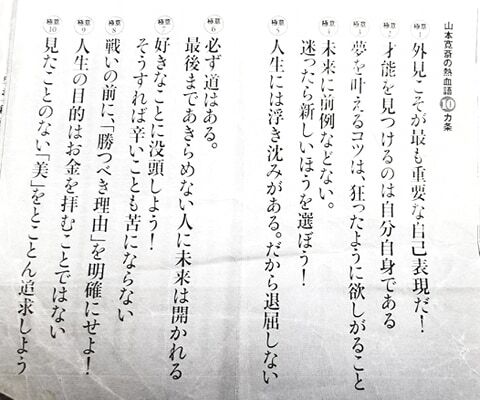 山本寛斎の熱血語10カ条
極意1 外見こそが最も重要な自己表現だ!
極意2 才能を見つけるのは自分自身である
極意3 夢を叶えるコツは、狂ったように欲しがること
極意4 未来に前例などない。
迷ったら新しいほうを選ぼう!
極意5 人生には浮き沈みがある。だから退屈しない
極意6 必ず道はある。
最後まであきらめない人に未来は開かれる
極意7 好きなことに没頭しよう!
そうすれば辛いことも苦にならない
極意8 戦いの前に、「勝つべき理由」を明確にせよ!
極意9 人生の目的はお金を拝むことではない
極意10 見たことのない「美」をとことん追求しよう